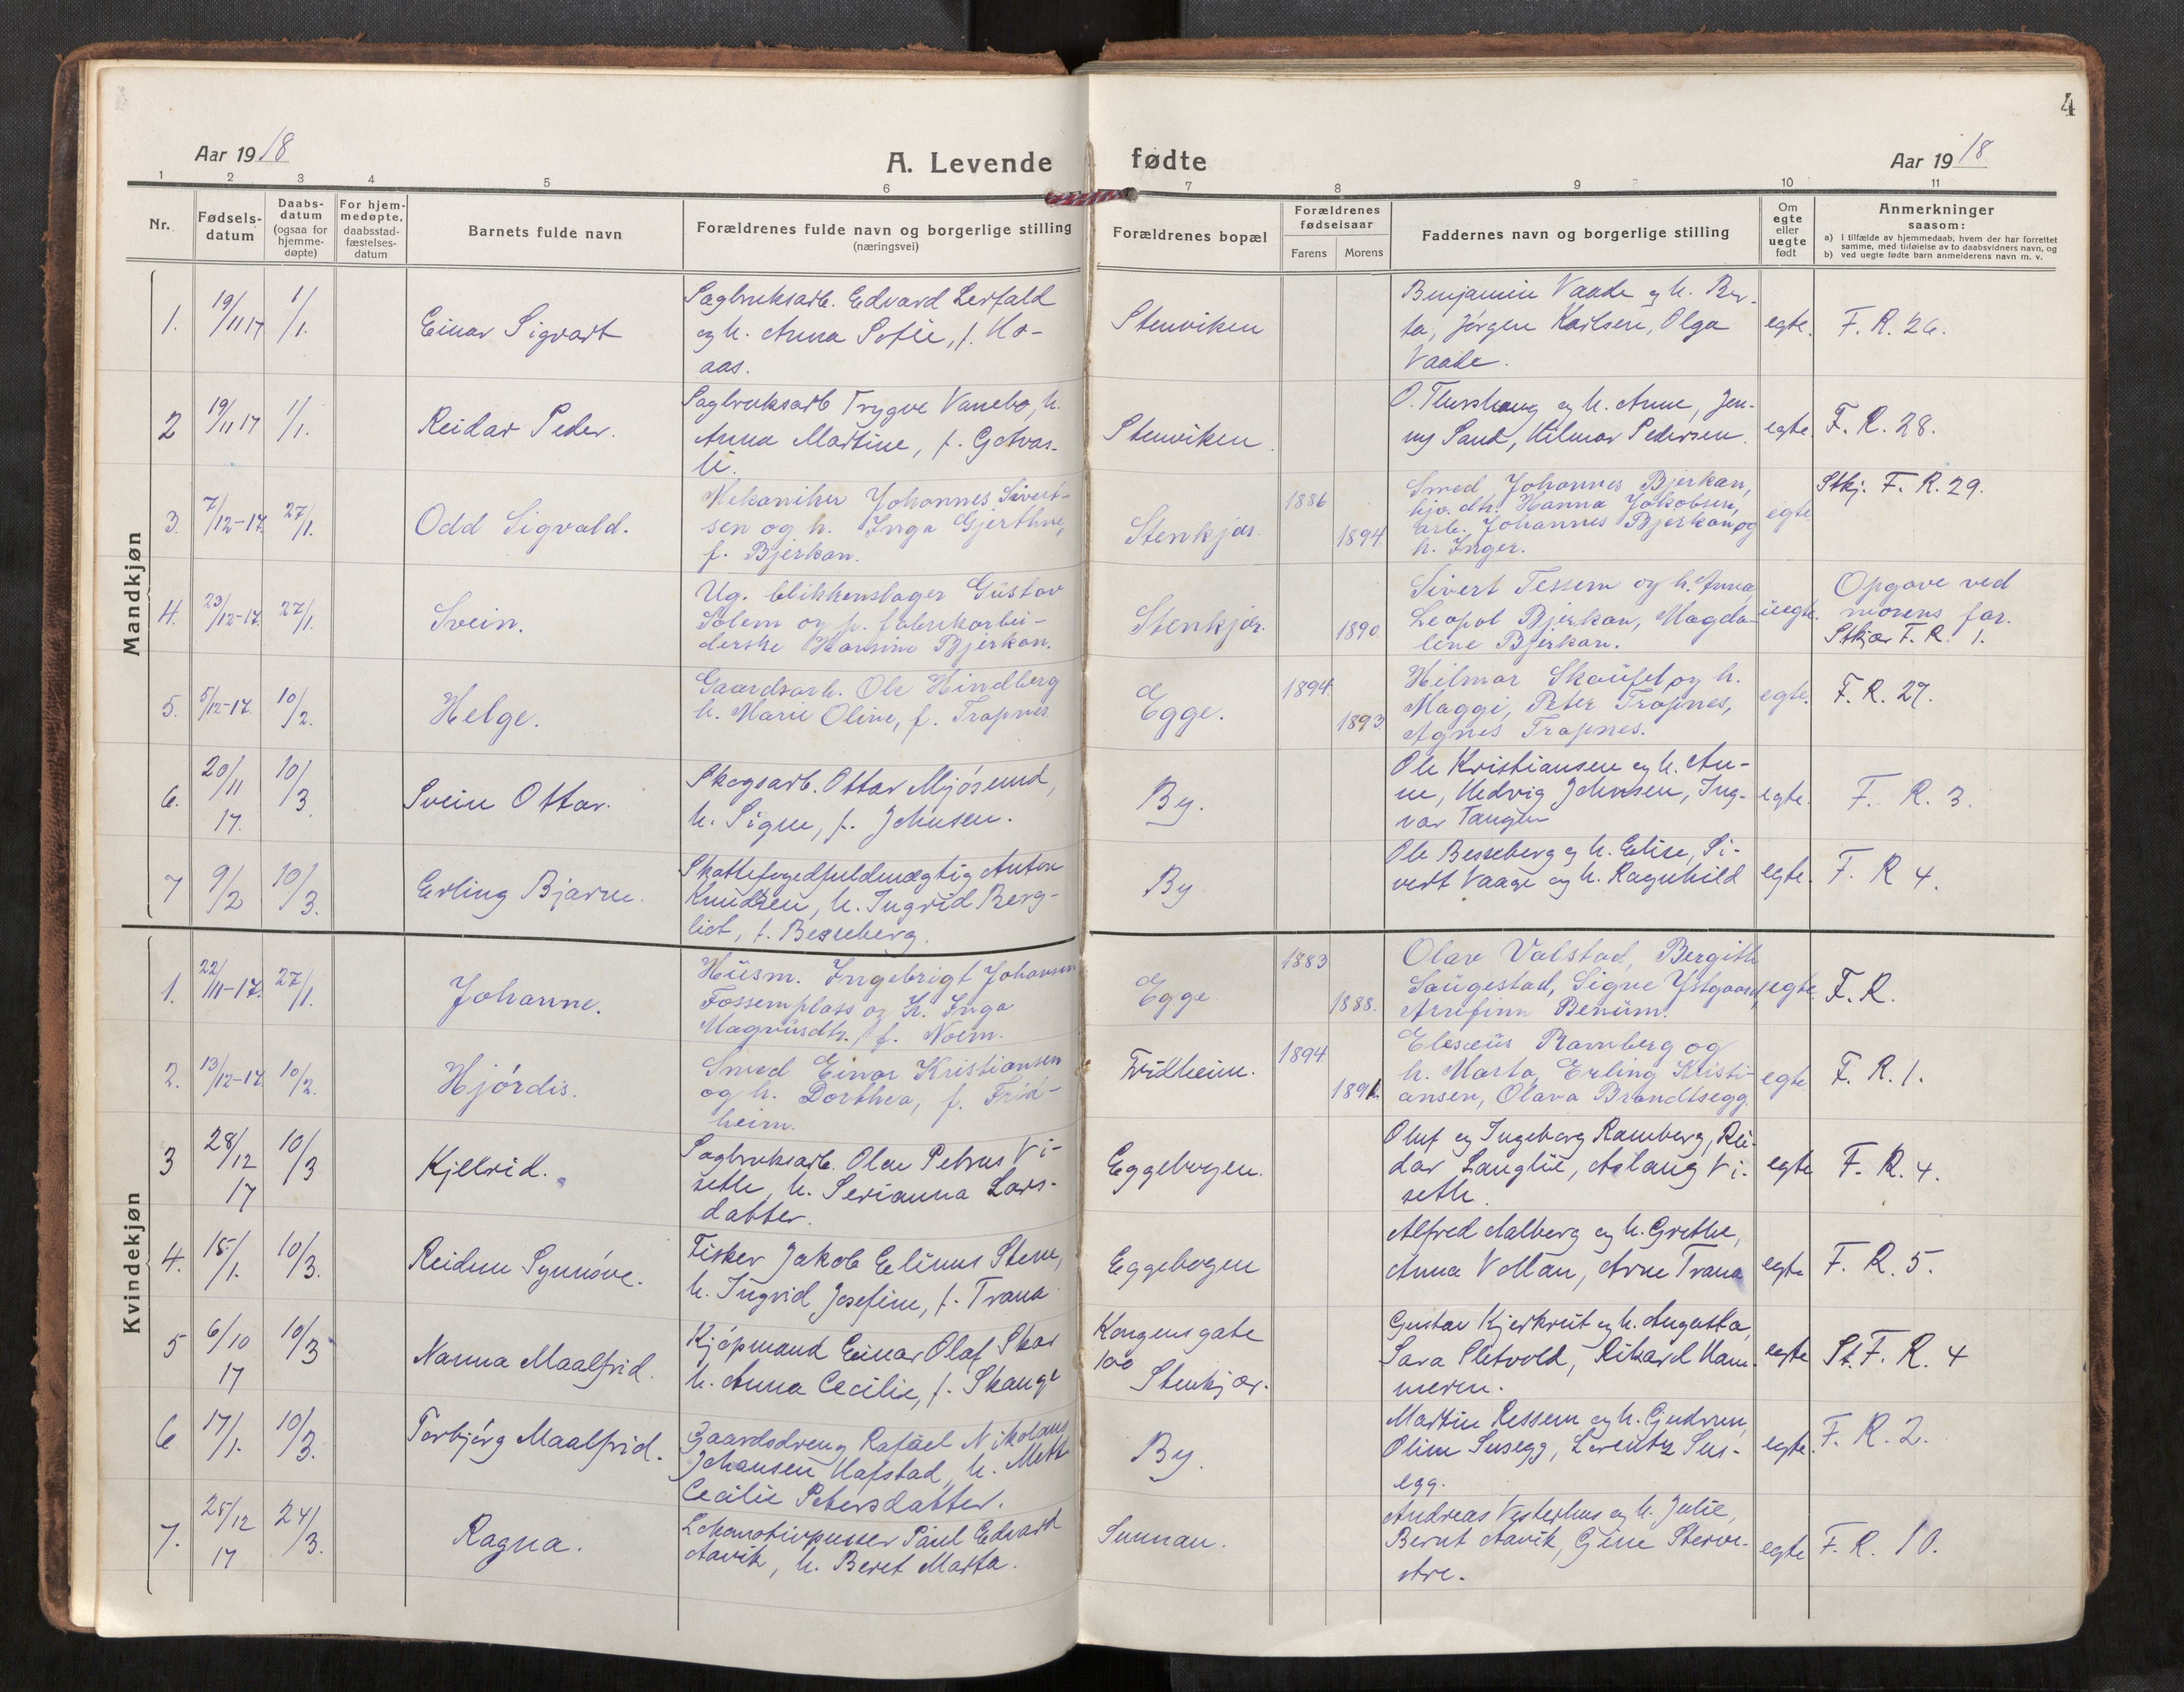 4
Aar 1918
A. Levende fødte
Aar 1918
1 2 3 4 5 6 7 8 9 10 11
Nr.
Fødsels-
datum
Daabs-
datum
(ogsaa for
hjemme-
døpte)
For hjem-
medøpte,
daabsstad-
fæstelses-
datum
Barnets fulde navn
Forældrenes fulde navn og borgerlige stilling
(næringsvei)
Forældrenes bopæl
Forældrenes
fødselsaar
Farens Morens
Faddernes navn og borgerlige stilling
Om
egte
eller
uegte
født
Anmerkninger
saasom:
a) i tilfælde av hjemmedaab, hvem der har forrettet
samme, med tilføielse av to daabsvidners navn, og
b) ved uegte fødte barn anmelderens navn m. v.
Mandkjøn
1. 19/11 17 1/1. Einar Sigvart
Sagbruksarb. Edvard Lerfald
og h. Anna Sofie, f. Mo-
aas.
Stenviken
Benjamin Vaade og h. Ber-
ta, Jørgen Karlsen, Olga
Vaade.
egte. F. R. 26.
2 19/11 17 1/1. Reidar Peder.
Sagbruksarb Trygve Vanebo, h.
Anna Martine, f. Getvas-
li.
Stenviken.
O. og h. Anne, Jen-
ny Sand, Hilmar Pedersen.
egte. F. R. 28.
3. 7/12-17. 27/1. Odd Sigvald.
Mekaniker Johannes Sivert-
sen og h. Inga Gjerthne,
f. Bjerkan.
Stenkjær.
1886
1894.
Smed Johannes Bjerkan,
Hanna Jakobsen,
Arb. Johannes Bjerkan og
h. Inger.
egte
Stkj. F. R. 29.
4. 23/12-17. 27/1. Svein.
Ug. blikkenslager Gustav
Solem og p. fabrikarbei-
derske Hansine Bjerkan.
Stenkjær.
1890.
Sivert Tessem og h. Anna,
Leopol Bjerkan, Magda-
lene Bjerkan.
uegte.
Opgave ved
morens far.
Stkjær F. R. 1.
5. 5/12-17. 10/2. Helge.
Gaardsarb. Ole Hindberg
h. Marie Oline, f. Trapnes
Egge.
1894.
1893
Hilmar Skaufel og h.
Maggi, Peter Trapnes,
Agnes Trapnes.
egte. F. R. 27.
6. 20/11 17. 10/3. Svein Ottar.
Skogsarb. Ottar Mjøsund,
h. Signe, f. Johnsen.
By.
Ole Kristiansen og h. An-
ne, Hedvig Johnsen, Ing-
var Tangen
egte. F. R. 3.
7 9/2 10/3. Erling Bjarne.
Skattefogedfuldmægtig Anton
Knudzen, h. Ingrid Berg-
liot, f. Besseberg.
By
Ole Besseberg og h. Elise, Si-
vert Vaage og h. Ragnhild
egte. F. R 4.
Kvindekjøn
1. 22/11-17. 27/1. Johanne.
Husm. Ingebrigt Johansen
Fossemplass og h. Inga
Magnusdtr. f. Noem.
Egge
1883
1888.
Olav Valstad, Bergitte
Saugestad, Signe Ystgaard,
Arnfinn Benum.
egte. F. R.
2. 13/12-17 10/2. Hjórdis.
Smed Einar Kristiansen
og h. Dorthea, f. Frid-
heim.
Fridheim.
1894
1891.
Eleseus Ramberg og
h. Marta, Erling Kristi-
ansen, Olava Brandtsegg.
egte F. R. 1.
3 28/12 17 10/3 Kjellrid.
Sagbruksarb. Olav Petrus Vi-
seth, h. Serianna Lars-
datter.
Eggebogen.
Oluf og Ingeborg Ramberg, Rei-
dar Langlie, Aslaug Vi-
seth.
egte F. R. 4.
4. 15/1. 10/3. Reidun Synnøve.
Fisker Jakob Elinus Stene,
h. Ingrid Josefine, f. Trana
Eggebogen
Alfred Aalberg og h. Grethe,
Anna Vollan, Arne Trana
egte F. R. 5.
5 6/10 17 10/3 Nanna Maalfrid.
Kjøpmand Einar Olaf Skar
h. Anna Cecilie, f. Skauge
Kongensgate
100
Stenkjær.
Gustav Kjerkreit og h. Augusta,
Sara Sletvold, Rikard Ham-
meren.
egte St. F. R. 4
6 17/1. 10/3. Torbjørg Maalfrid.
Gaardsdreng Rafael Nikolaus
Johansen Hafstad, h. Mette
Cecilie Petersdatter.
By.
Martin Ressem og h. Gjudrun,
Oline Susegg, Lorentz Sus-
egg.
egte. F. R. 2.
7. 25/12 17 24/3. Ragna.
Lokomotivpusser Paul Edvard
Aavik, h. Beret Marta.
Sunnan.
Andreas Vesterhus og h. Julie,
Bernt Aavik, Gine
egte F. R. 10.